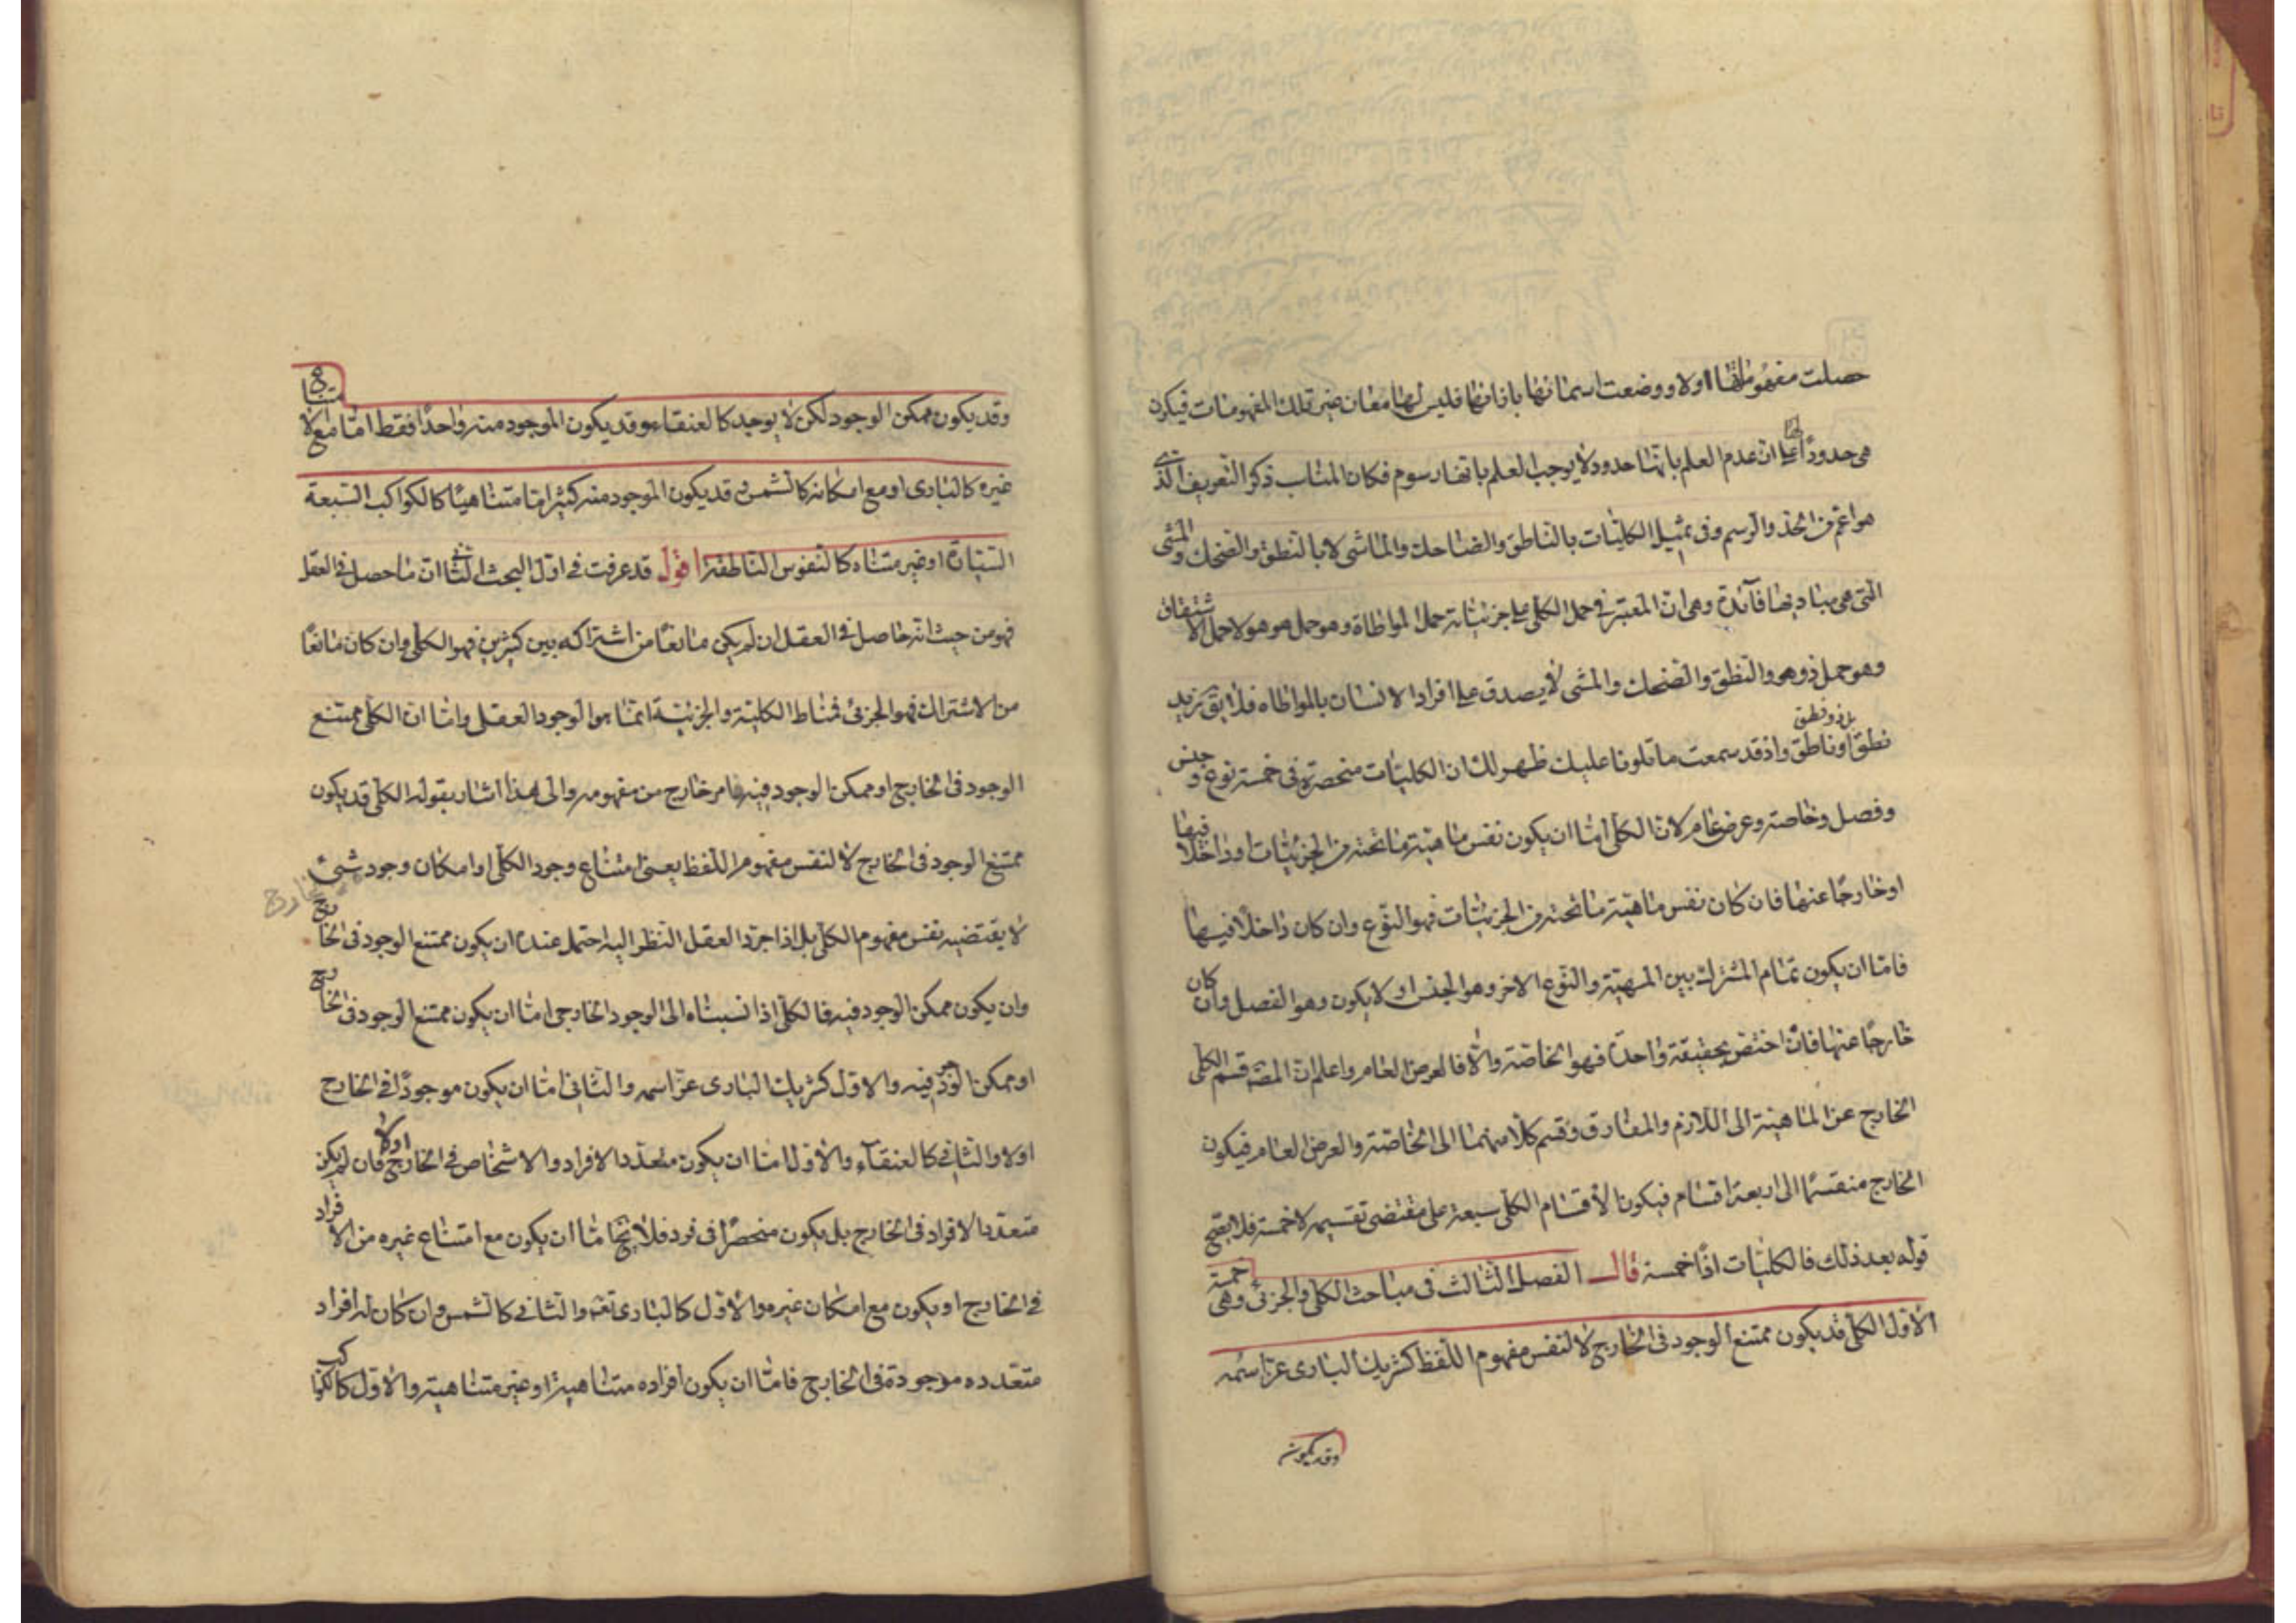 حصلت مفهوماتها اولا ووضعت اسمائها بازائها فليس لها معان غير تلك المفهومات فيكون
هى حدودًا على ان عدم العلم بانها حدود لا يوجب العلم بانها رسوم فكان المناسب ذكر التعريف الذى
هو اعم من الحد والرسم وفى تمثيل الكليات بالناطق والضاحك والماشى لا بالنطق والضحك والمشى
التى هى مباديها فائدة وهى ان المعتبر فى حمل الكلى على جزئياته حمل المواطاة وهو حمل هو هو لا حمل الاشتقاق
وهو حمل ذو هو والنطق والضحك والمشى لا يصدق على افراد الانسان بالمواطاه فلا يق زيد
نطق بل ذو نطق او ناطق واذ قد سمعت ما تلونا عليك ظهر لك ان الكليات منحصرة فى خمسة نوع وجنس
وفصل وخاصة وعرض عام لان الكلى اما ان يكون نفس ماهية ما تحته من الجزئيات او داخلا فيها
او خارجًا عنها فان كان نفس ماهية ما تحته من الجزئيات فهو النوع وان كان داخلًا فيها
فاما ان يكون تمام المشترك بين المهية والنوع الاخر وهو الجنس او لا يكون وهو الفصل وان كان
خارجًا عنها فان اختص بحقيقة واحدة فهو الخاصة والا فالعرض العام واعلم ان المصه قسم الكلى
الخارج عن الماهية الى اللازم والمفارق وقسم كلا منهما الى الخاصة والعرض العام فيكون
الخارج منقسمًا الى اربعة اقسام فيكون الاقسام الكلى سبعة على مقتضى تقسيمه لا خمسة فلا يصح
قوله بعد ذلك فالكليات اذًا خمسة قال الفصل الثالث فى مباحث الكلى والجزئى وهى خمسة
الاول الكلى قد يكون ممتنع الوجود فى الخارج لا لنفس مفهوم اللفظ كشريك البارى عز اسمه
وقد يكون
وقد يكون ممكن الوجود لكن لا يوجد كالعنقاء وقد يكون الموجود منه واحدًا فقط اما مع امتناع
غيره كالبارى او مع امكانه كالشمس وقد يكون الموجود منه كثيرا اما متناهيًا كالكواكب السبعة
السيارة او غير متناه كالنفوس الناطقة اقول قد عرفت فى اول البحث الثانى ان ما حصل فى العقل
فهو من حيث انه حاصل فى العقل ان لم يكن مانعًا من اشتراكه بين كثيرين فهو الكلى وان كان مانعًا
من الاشتراك فهو الجزئى فمناط الكلية والجزئية انما هو الوجود العقلى واما ان الكلى ممتنع
الوجود فى الخارج او ممكن الوجود فيه فامر خارج من مفهومه والى هذا اشار بقوله الكلى قد يكون
ممتنع الوجود فى الخارج لا لنفس مفهوم اللفظ يعنى امتناع وجود الكلى او امكان وجود شئ
خارج
لا يقتضيه نفس مفهوم الكلى بل اذا جرد العقل النظر اليه احتمل عنده ان يكون ممتنع الوجود فى الخارج
وان يكون ممكن الوجود فيه فالكلى اذا نسبناه الى الوجود الخارجى اما ان يكون ممتنع الوجود فى الخارج
او ممكن الوجود فيه والاول كشريك البارى عز اسمه والثانى اما ان يكون موجودًا فى الخارج
اولا والثانى كالعنقاء والاول اما ان يكون متعدد الافراد والاشخاص فى الخارج اولا فان لم يكن
متعدد الافراد فى الخارج بل يكون منحصرًا فى فرد فلا يخ اما ان يكون مع امتناع غيره من الافراد
فى الخارج او يكون مع امكان غيره والاول كالبارى تعه والثانى كالشمس وان كان له افراد
متعدده موجودة فى الخارج فاما ان يكون افراده متناهية او غير متناهية والاول كالكواكب